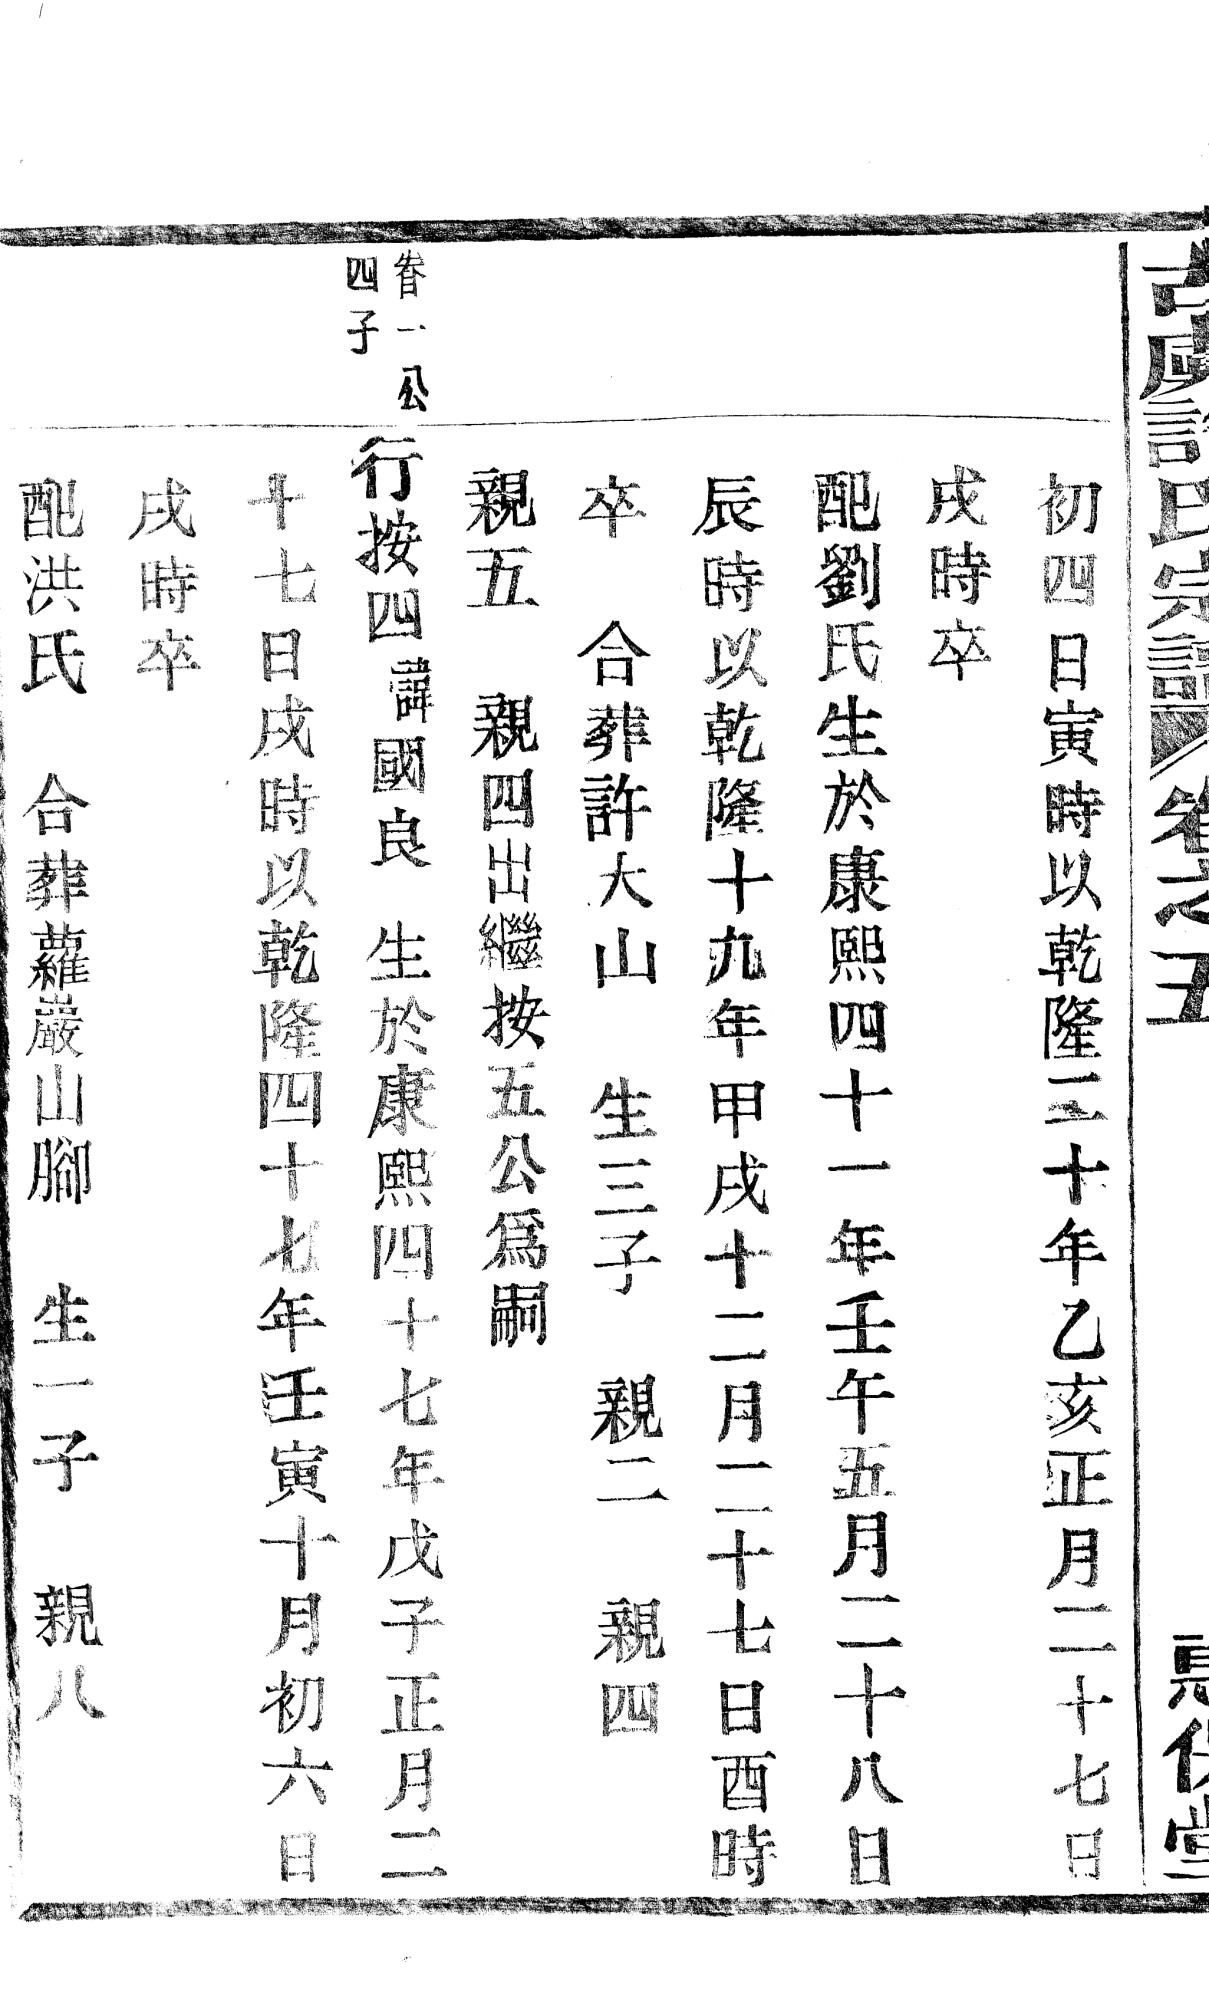 古虞許氏宗譜 卷之五
初四日寅時以乾隆二十年乙亥正月二十七日
戌時卒
配劉氏生於康熙四十一年壬午五月二十八日
辰時以乾隆十九年甲戌十二月二十七日酉時
卒 合葬許大山 生三子 親二 親四
親五 親四出繼按五公爲嗣
眘一公
四子
行按四諱國良 生於康熙四十七年戊子正月二
十七日戌時以乾隆四十七年壬寅十月初六日
戌時卒
配洪氏 合葬蘿巖山腳 生一子 親八